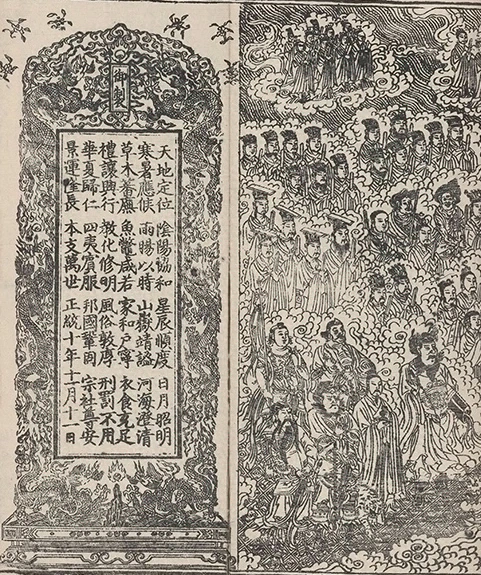 御製
天地定位　陰陽協和　星辰順度　日月昭明
寒暑應候　雨暘以時　山嶽靖謐　河海澄清
草木蕃廡　魚鱉咸若　家和戶寧　衣食充足
禮讓興行　教化修明　風俗敦厚　刑罰不用
華夏歸仁　四夷賓服　邦國鞏固　宗社尊安
景運隆長　本支萬世　正統十年十一月十一日